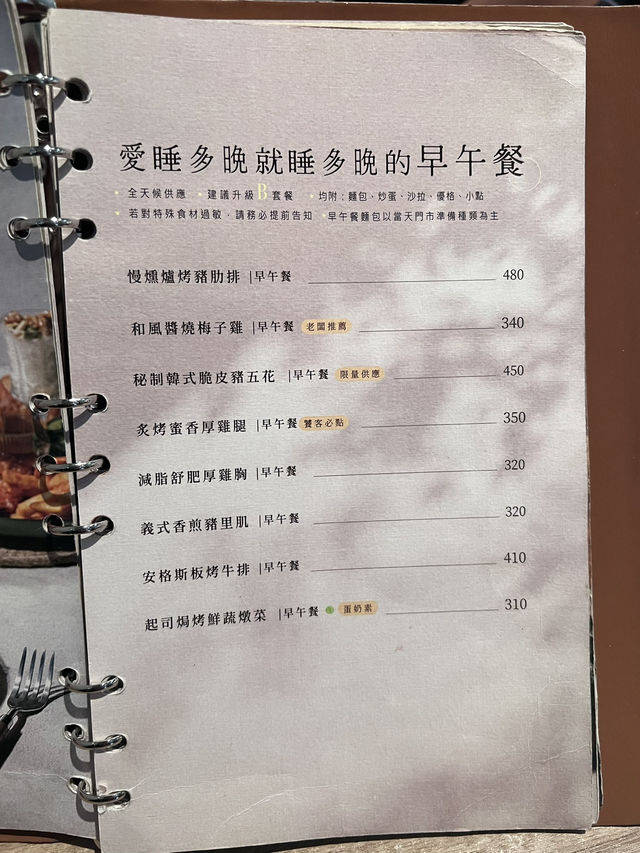 愛睡多晚就睡多晚的早午餐
全天候供應 建議升級B套餐 均附：麵包、炒蛋、沙拉、優格、小點
若對特殊食材過敏，請務必提前告知 早午餐麵包以當天門市準備種類為主
慢燻爐烤豬肋排 |早午餐 480
和風醬燒梅子雞 |早午餐 老闆推薦 340
秘制韓式脆皮豬五花 |早午餐 限量供應 450
炙烤蜜香厚雞腿 |早午餐 饕客必點 350
減脂舒肥厚雞胸 |早午餐 320
義式香煎豬里肌 |早午餐 320
安格斯板烤牛排 |早午餐 410
起司焗烤鮮蔬燉菜 |早午餐 蛋奶素 310